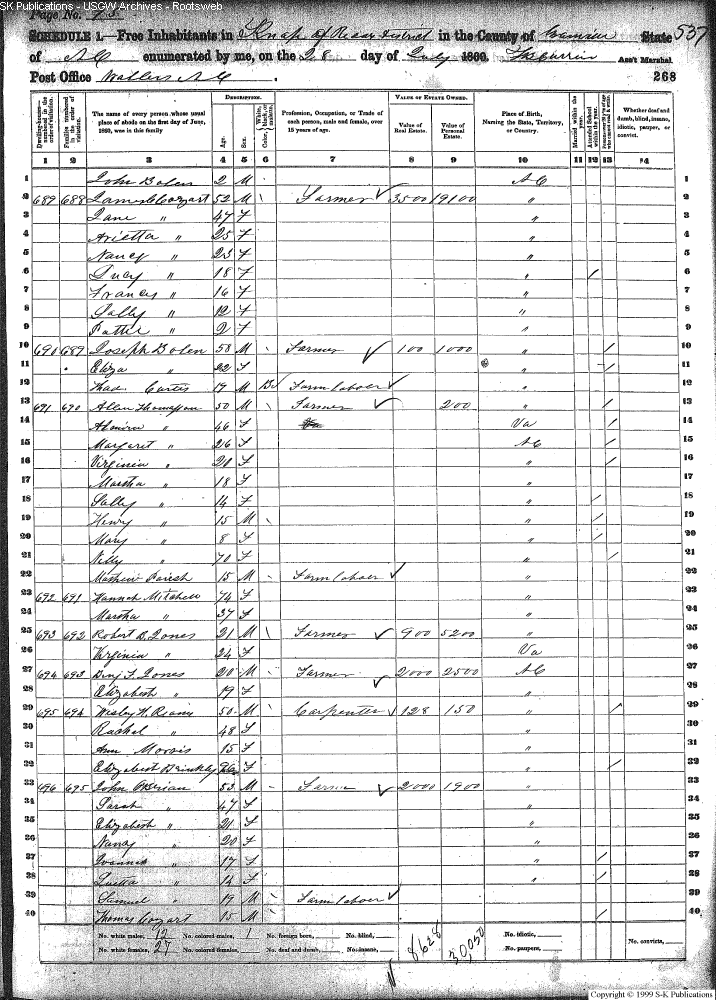 SK Publications - USGW Archives - Rootsweb
Page No. 75
SCHEDULE 1.—Free Inhabitants in Knap of Reeds District in the County of State 537
of N C enumerated by me, on the 28 day of July 1860. Ass't Marshal.
Post Office N C 268
Dwelling-houses— numbered in the order of visitation.
Families numbered in the order of visitation.
The name of every person whose usual place of abode on the first day of June, 1860, was in this family
DESCRIPTION.
Age Sex. Color, White, black, or mulatto.
Profession, Occupation, or Trade of each person, male and female, over 15 years of age.
VALUE OF ESTATE OWNED.
Value of Real Estate. Value of Personal Estate.
Place of Birth, Naming the State, Territory, or Country.
Married within the year. Attended School within the year.
Whether deaf and dumb, blind, insane, idiotic, pauper, or convict.
1 2 3 4 5 6 7 8 9 10 11 12 13 14
1 John Bolen 2 M N C 1
2 689 688 James Cozart 52 M \ Farmer ✓ 3500 19100 " 2
3 Jane " 47 F " 3
4 Arietta " 25 F " 4
5 Nancy " 23 F " 5
6 Lucy " 18 F " / 6
7 Frances " 16 F " 7
8 Sally " 12 F " 8
9 " 2 F " 9
10 690 689 Joseph Bolen 58 M Farmer ✓ 100 1000 " / 10
11 Eliza " 22 F " / 11
12 Thad. Curtis 19 M B Farm laborer ✓ " 12
13 691 690 Allen Thomasson 50 M Farmer ✓ 200 " / 13
14 Almira " 46 F Va / 14
15 Margaret " 26 F N C / 15
16 Virginia " 20 F " / 16
17 Martha " 18 F " 17
18 Sally " 14 F " / 18
19 Henry " 15 M " / 19
20 Mary " 8 F " / 20
21 " 70 F " / 21
22 Parish 15 M Farm laborer ✓ " 22
23 692 691 Hannah Mitchell 74 F " 23
24 Martha " 37 F " 24
25 693 692 Robert D. Jones 21 M \ Farmer ✓ 900 5200 " 25
26 Virginia " 24 F Va 26
27 694 693 Benj F. Jones 20 M Farmer ✓ 2000 2500 N C 27
28 Elizabeth " 19 F " 28
29 695 694 Wesley H. 50 M Carpenter ✓ 128 150 " / 29
30 Rachel " 48 F " 30
31 Ann Morris 15 F " 31
32 Elizabeth Brinkley F " / 32
33 696 695 John 53 M Farmer ✓ 2000 1900 " 33
34 Sarah " 47 F " 34
35 Elizabeth " 21 F " 35
36 Nancy " 20 F " 36
37 " 17 F " / 37
38 " 14 F " / 38
39 Samuel " 19 M Farm laborer ✓ 39
40 Thomas Cozart 15 M / 40
No. white males, 12 No. colored males, 1 No. foreign born, No. blind, 8628 30,050 No. idiotic, No. convicts,
No. white females, 27 No. colored females, No. deaf and dumb, No. insane, No. paupers,
Copyright © 1999 S-K Publications